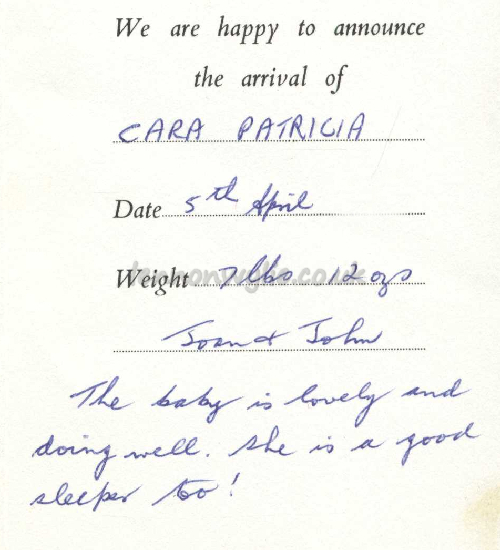 We are happy to announce
the arrival of
CARA PATRICIA
Date 5th April
Weight 7 lbs 12 ozs
Joan & John
The baby is lovely and
doing well. She is a good
sleeper too!